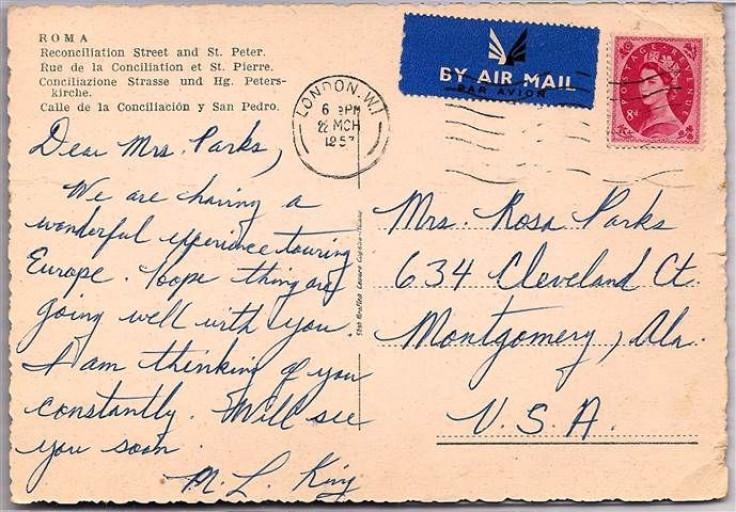 ROMA
Reconciliation Street and St. Peter.
Rue de la Conciliation et St. Pierre.
Conciliazione Strasse und Hg. Peters-
kirche.
Calle de la Conciliación y San Pedro.
BY AIR MAIL
PAR AVION
POSTAGE REVENUE
8d
LONDON. W.1
6 PM
22 MCH
1957
Dear Mrs. Parks,
We are having a
wonderful experience touring
Europe. hope things are
going well with you.
I am thinking of you
constantly. Will see
you soon.
M. L. King
Mrs. Rosa Parks
634 Cleveland Ct.
Montgomery, Ala.
U.S.A.